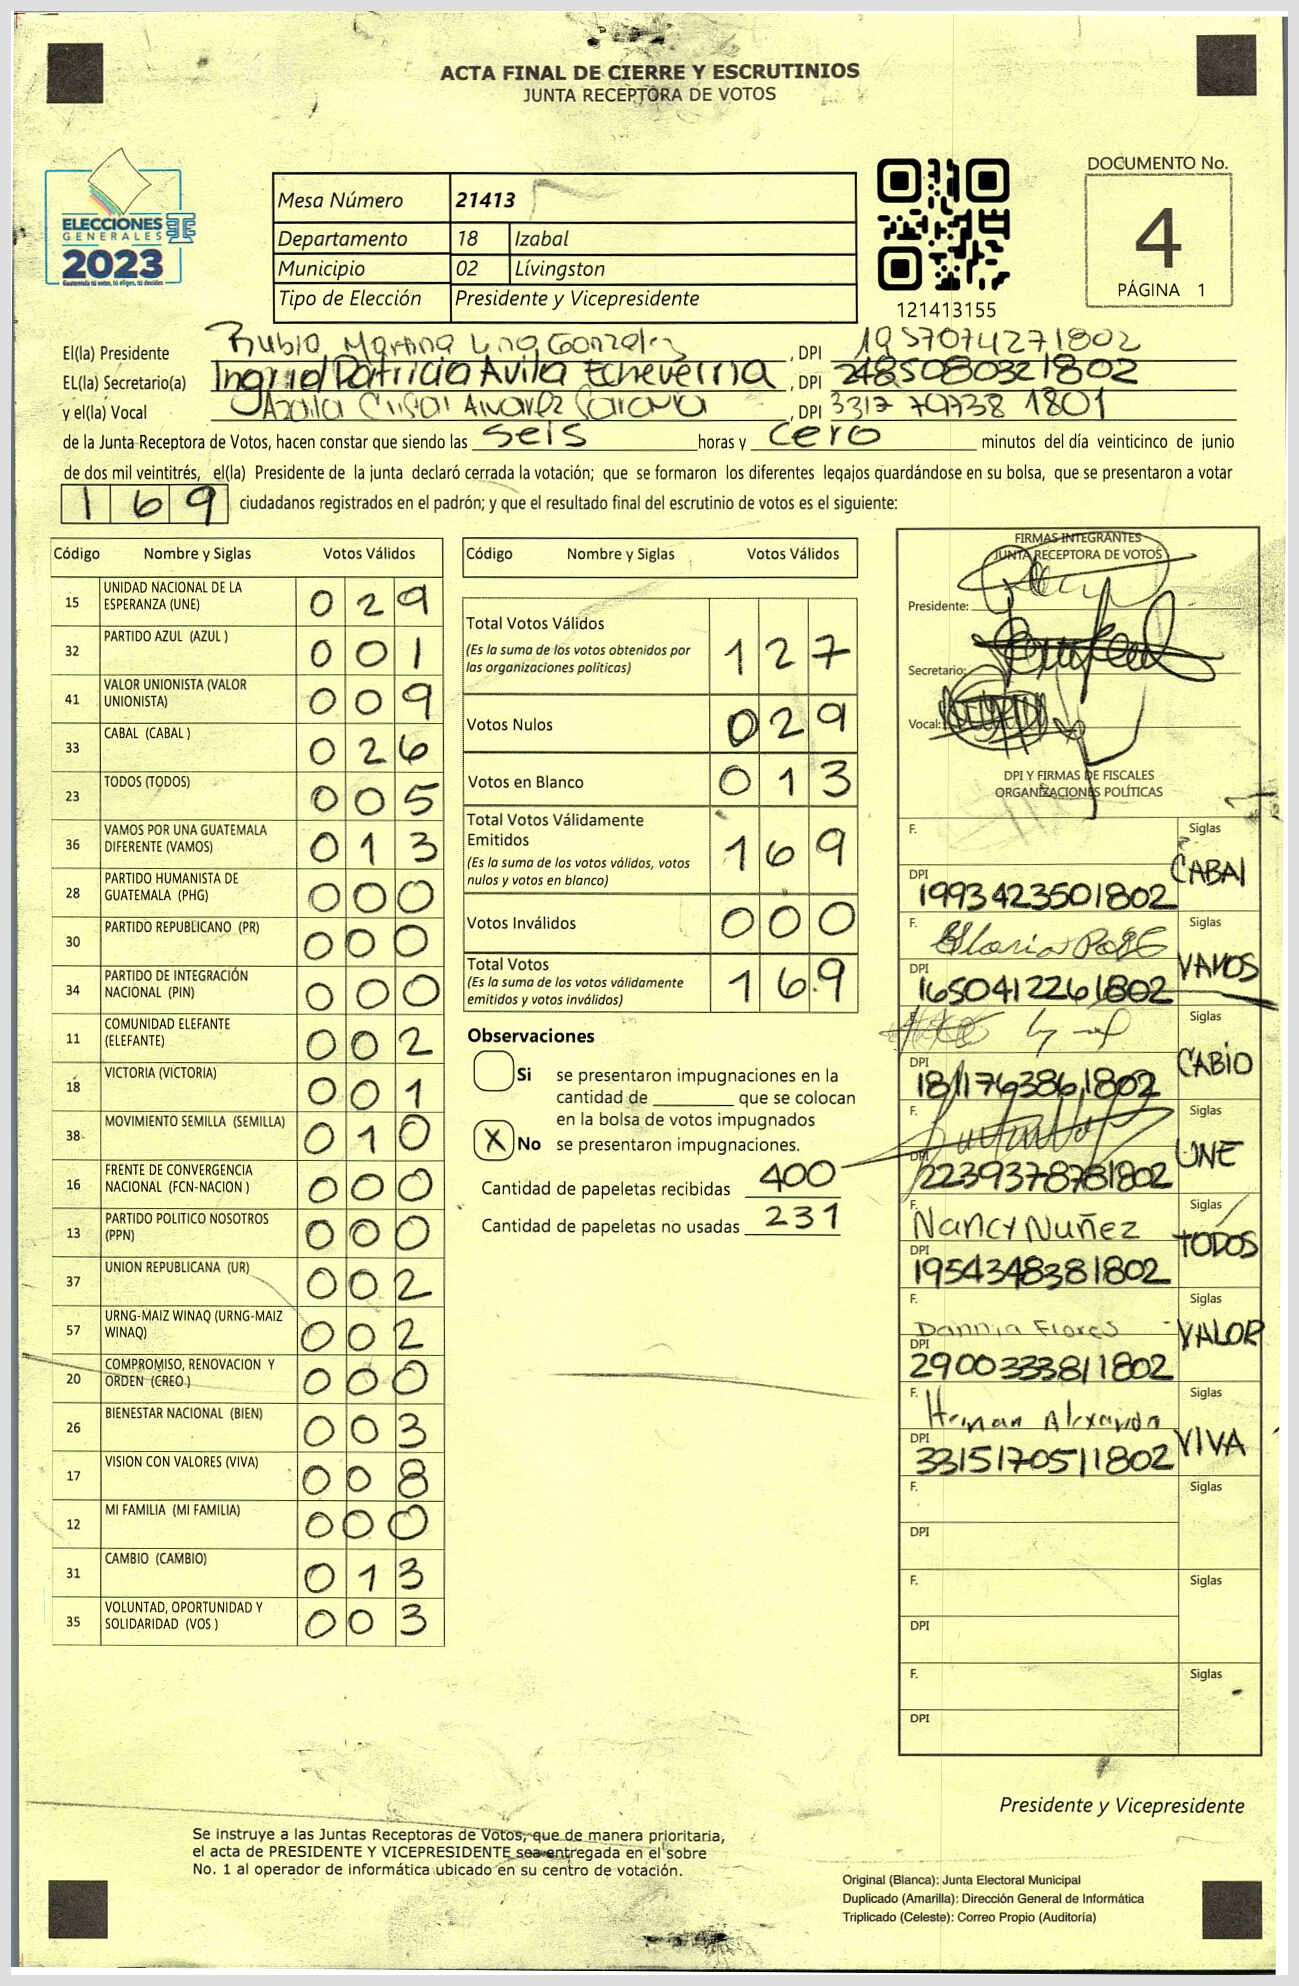 ACTA FINAL DE CIERRE Y ESCRUTINIOS
JUNTA RECEPTORA DE VOTOS
ELECCIONES
GENERALES
2023
Guatemala tú votas, tú eliges, tú decides
Mesa Número 21413
Departamento 18 Izabal
Municipio 02 Lívingston
Tipo de Elección Presidente y Vicepresidente
121413155
DOCUMENTO No.
4
PÁGINA 1
El(la) Presidente Rubia Martina , DPI 1957074271802
EL(la) Secretario(a) Ingrid Patricia Avila Echeverria , DPI 2485080321802
y el(la) Vocal Alvarez , DPI 3317 79738 1801
de la Junta Receptora de Votos, hacen constar que siendo las seis horas y cero minutos del día veinticinco de junio
de dos mil veintitrés, el(la) Presidente de la junta declaró cerrada la votación; que se formaron los diferentes legajos guardándose en su bolsa, que se presentaron a votar
169 ciudadanos registrados en el padrón; y que el resultado final del escrutinio de votos es el siguiente:
Código Nombre y Siglas Votos Válidos
15 UNIDAD NACIONAL DE LA ESPERANZA (UNE) 029
32 PARTIDO AZUL (AZUL ) 001
41 VALOR UNIONISTA (VALOR UNIONISTA) 009
33 CABAL (CABAL ) 026
23 TODOS (TODOS) 005
36 VAMOS POR UNA GUATEMALA DIFERENTE (VAMOS) 013
28 PARTIDO HUMANISTA DE GUATEMALA (PHG) 000
30 PARTIDO REPUBLICANO (PR) 000
34 PARTIDO DE INTEGRACIÓN NACIONAL (PIN) 000
11 COMUNIDAD ELEFANTE (ELEFANTE) 002
18 VICTORIA (VICTORIA) 001
38 MOVIMIENTO SEMILLA (SEMILLA) 010
16 FRENTE DE CONVERGENCIA NACIONAL (FCN-NACION ) 000
13 PARTIDO POLITICO NOSOTROS (PPN) 000
37 UNION REPUBLICANA (UR) 002
57 URNG-MAIZ WINAQ (URNG-MAIZ WINAQ) 002
20 COMPROMISO, RENOVACION Y ORDEN (CREO ) 000
26 BIENESTAR NACIONAL (BIEN) 003
17 VISION CON VALORES (VIVA) 008
12 MI FAMILIA (MI FAMILIA) 000
31 CAMBIO (CAMBIO) 013
35 VOLUNTAD, OPORTUNIDAD Y SOLIDARIDAD (VOS ) 003
Código Nombre y Siglas Votos Válidos
Total Votos Válidos 127
(Es la suma de los votos obtenidos por
las organizaciones políticas)
Votos Nulos 029
Votos en Blanco 013
Total Votos Válidamente
Emitidos 169
(Es la suma de los votos válidos, votos
nulos y votos en blanco)
Votos Inválidos 000
Total Votos 169
(Es la suma de los votos válidamente
emitidos y votos inválidos)
Observaciones
Si se presentaron impugnaciones en la
cantidad de ________ que se colocan
en la bolsa de votos impugnados
X No se presentaron impugnaciones.
Cantidad de papeletas recibidas 400
Cantidad de papeletas no usadas 231
FIRMAS INTEGRANTES
JUNTA RECEPTORA DE VOTOS
Presidente:
Secretario:
Vocal:
DPI Y FIRMAS DE FISCALES
ORGANIZACIONES POLÍTICAS
F. Siglas CABAL
DPI 1993423501802
F. Siglas VAMOS
DPI 1650412261802
F. Siglas CABIO
DPI 1811763861802
F. Siglas UNE
DPI 2239378781802
F. Nancy Nuñez Siglas TODOS
DPI 1954348381802
F. Dannia Flores Siglas VALOR
DPI 2900333811802
F. Siglas VIVA
DPI 3315170511802
F. Siglas
DPI
F. Siglas
DPI
F. Siglas
DPI
Presidente y Vicepresidente
Se instruye a las Juntas Receptoras de Votos, que de manera prioritaria,
el acta de PRESIDENTE Y VICEPRESIDENTE sea entregada en el sobre
No. 1 al operador de informática ubicado en su centro de votación.
Original (Blanca): Junta Electoral Municipal
Duplicado (Amarilla): Dirección General de Informática
Triplicado (Celeste): Correo Propio (Auditoría)